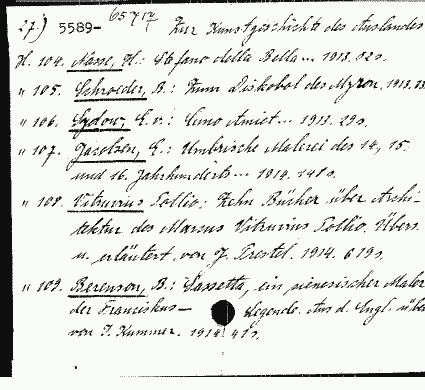 27.) 5589- 65717 Zur Kunstgeschichte des Auslandes
H. 104. Nasse, H.: Stefano della Bella... 1913. 02 s.
" 105. Schroeder, B.: Zum Diskobol des Myron. 1913.
" 106. Sydow, E. v.: Cuno Amiet... 1913. 29 s.
" 107. Jacobsen, E.: Umbrische Malerei des 14., 15.
und 16. Jahrhunderts... 1914. 148 s.
" 108. Vitruvius Pollio: Zehn Bücher über Archi-
tektur des Marcus Vitruvius Pollio. Übers.
u. erläutert von J. Prestel. 1914. 619 s.
" 109. Berenson, B.: Sassetta, ein sienesischer Maler
der Franziskus- legende. Aus d. Engl. übe
von I. Kummer. 1914. 41 s.